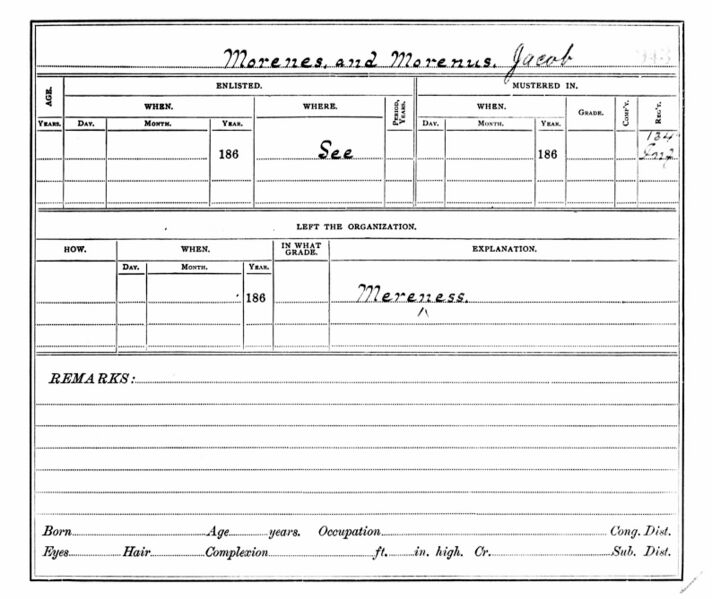 Morenes, and Morenus. Jacob
AGE. ENLISTED. MUSTERED IN.
WHEN. WHERE. PERIOD, YEARS. WHEN. GRADE. COMP'Y. REG'T.
YEARS. DAY. MONTH. YEAR. DAY. MONTH. YEAR.
134
186 See 186 Inf
LEFT THE ORGANIZATION.
HOW. WHEN. IN WHAT GRADE. EXPLANATION.
DAY. MONTH. YEAR.
186 Mereness.
REMARKS:
Born Age years. Occupation Cong. Dist.
Eyes Hair Complexion ft. in. high. Cr. Sub. Dist.